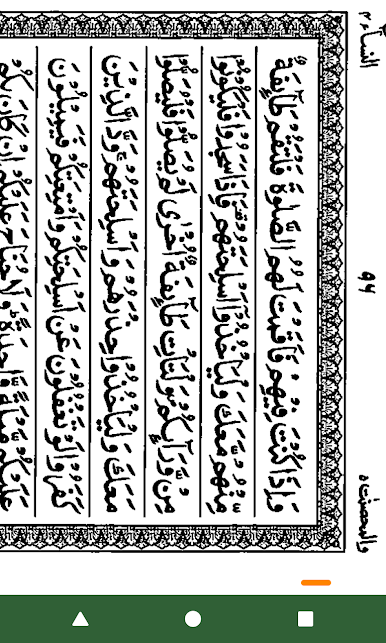 النسآء
والمحصنت ٥
وَاِذَا كُنْتَ فِيْهِمْ فَاَقَمْتَ لَهُمُ الصَّلٰوةَ فَلْتَقُمْ طَآئِفَةٌ
مِّنْهُمْ مَّعَكَ وَلْيَاْخُذُوْٓا اَسْلِحَتَهُمْ ۫ فَاِذَا سَجَدُوْا فَلْيَكُوْنُوْا
مِنْ وَّرَآئِكُمْ ۪ وَلْتَاْتِ طَآئِفَةٌ اُخْرٰى لَمْ يُصَلُّوْا فَلْيُصَلُّوْا
مَعَكَ وَلْيَاْخُذُوْا حِذْرَهُمْ وَاَسْلِحَتَهُمْ ۚ وَدَّ الَّذِيْنَ
كَفَرُوْا لَوْ تَغْفُلُوْنَ عَنْ اَسْلِحَتِكُمْ وَاَمْتِعَتِكُمْ فَيَمِيْلُوْنَ
عَلَيْكُمْ مَّيْلَةً وَّاحِدَةً ؕ وَلَا جُنَاحَ عَلَيْكُمْ اِنْ كَانَ بِكُمْ